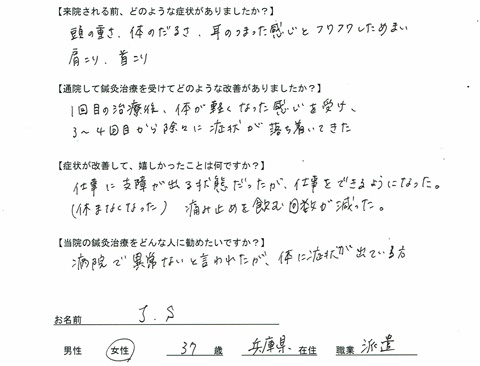 【来院される前、どのような症状がありましたか?】
頭の重さ、体のだるさ、耳のつまった感じとフワフワしためまい
肩こり、首こり
【通院して鍼灸治療を受けてどのような改善がありましたか?】
1回目の治療後、体が軽くなった感じを受け、
3〜4回目から除々に症状が落ち着いてきた
【症状が改善して、嬉しかったことは何ですか?】
仕事に支障が出る状態だったが、仕事をできるようになった。
(休まなくなった) 痛み止めを飲む回数が減った。
【当院の鍼灸治療をどんな人に勧めたいですか?】
病院で異常ないと言われたが、体に症状が出ている方
お名前 J.S
男性 女性 37 歳 兵庫県 在住 職業 派遣